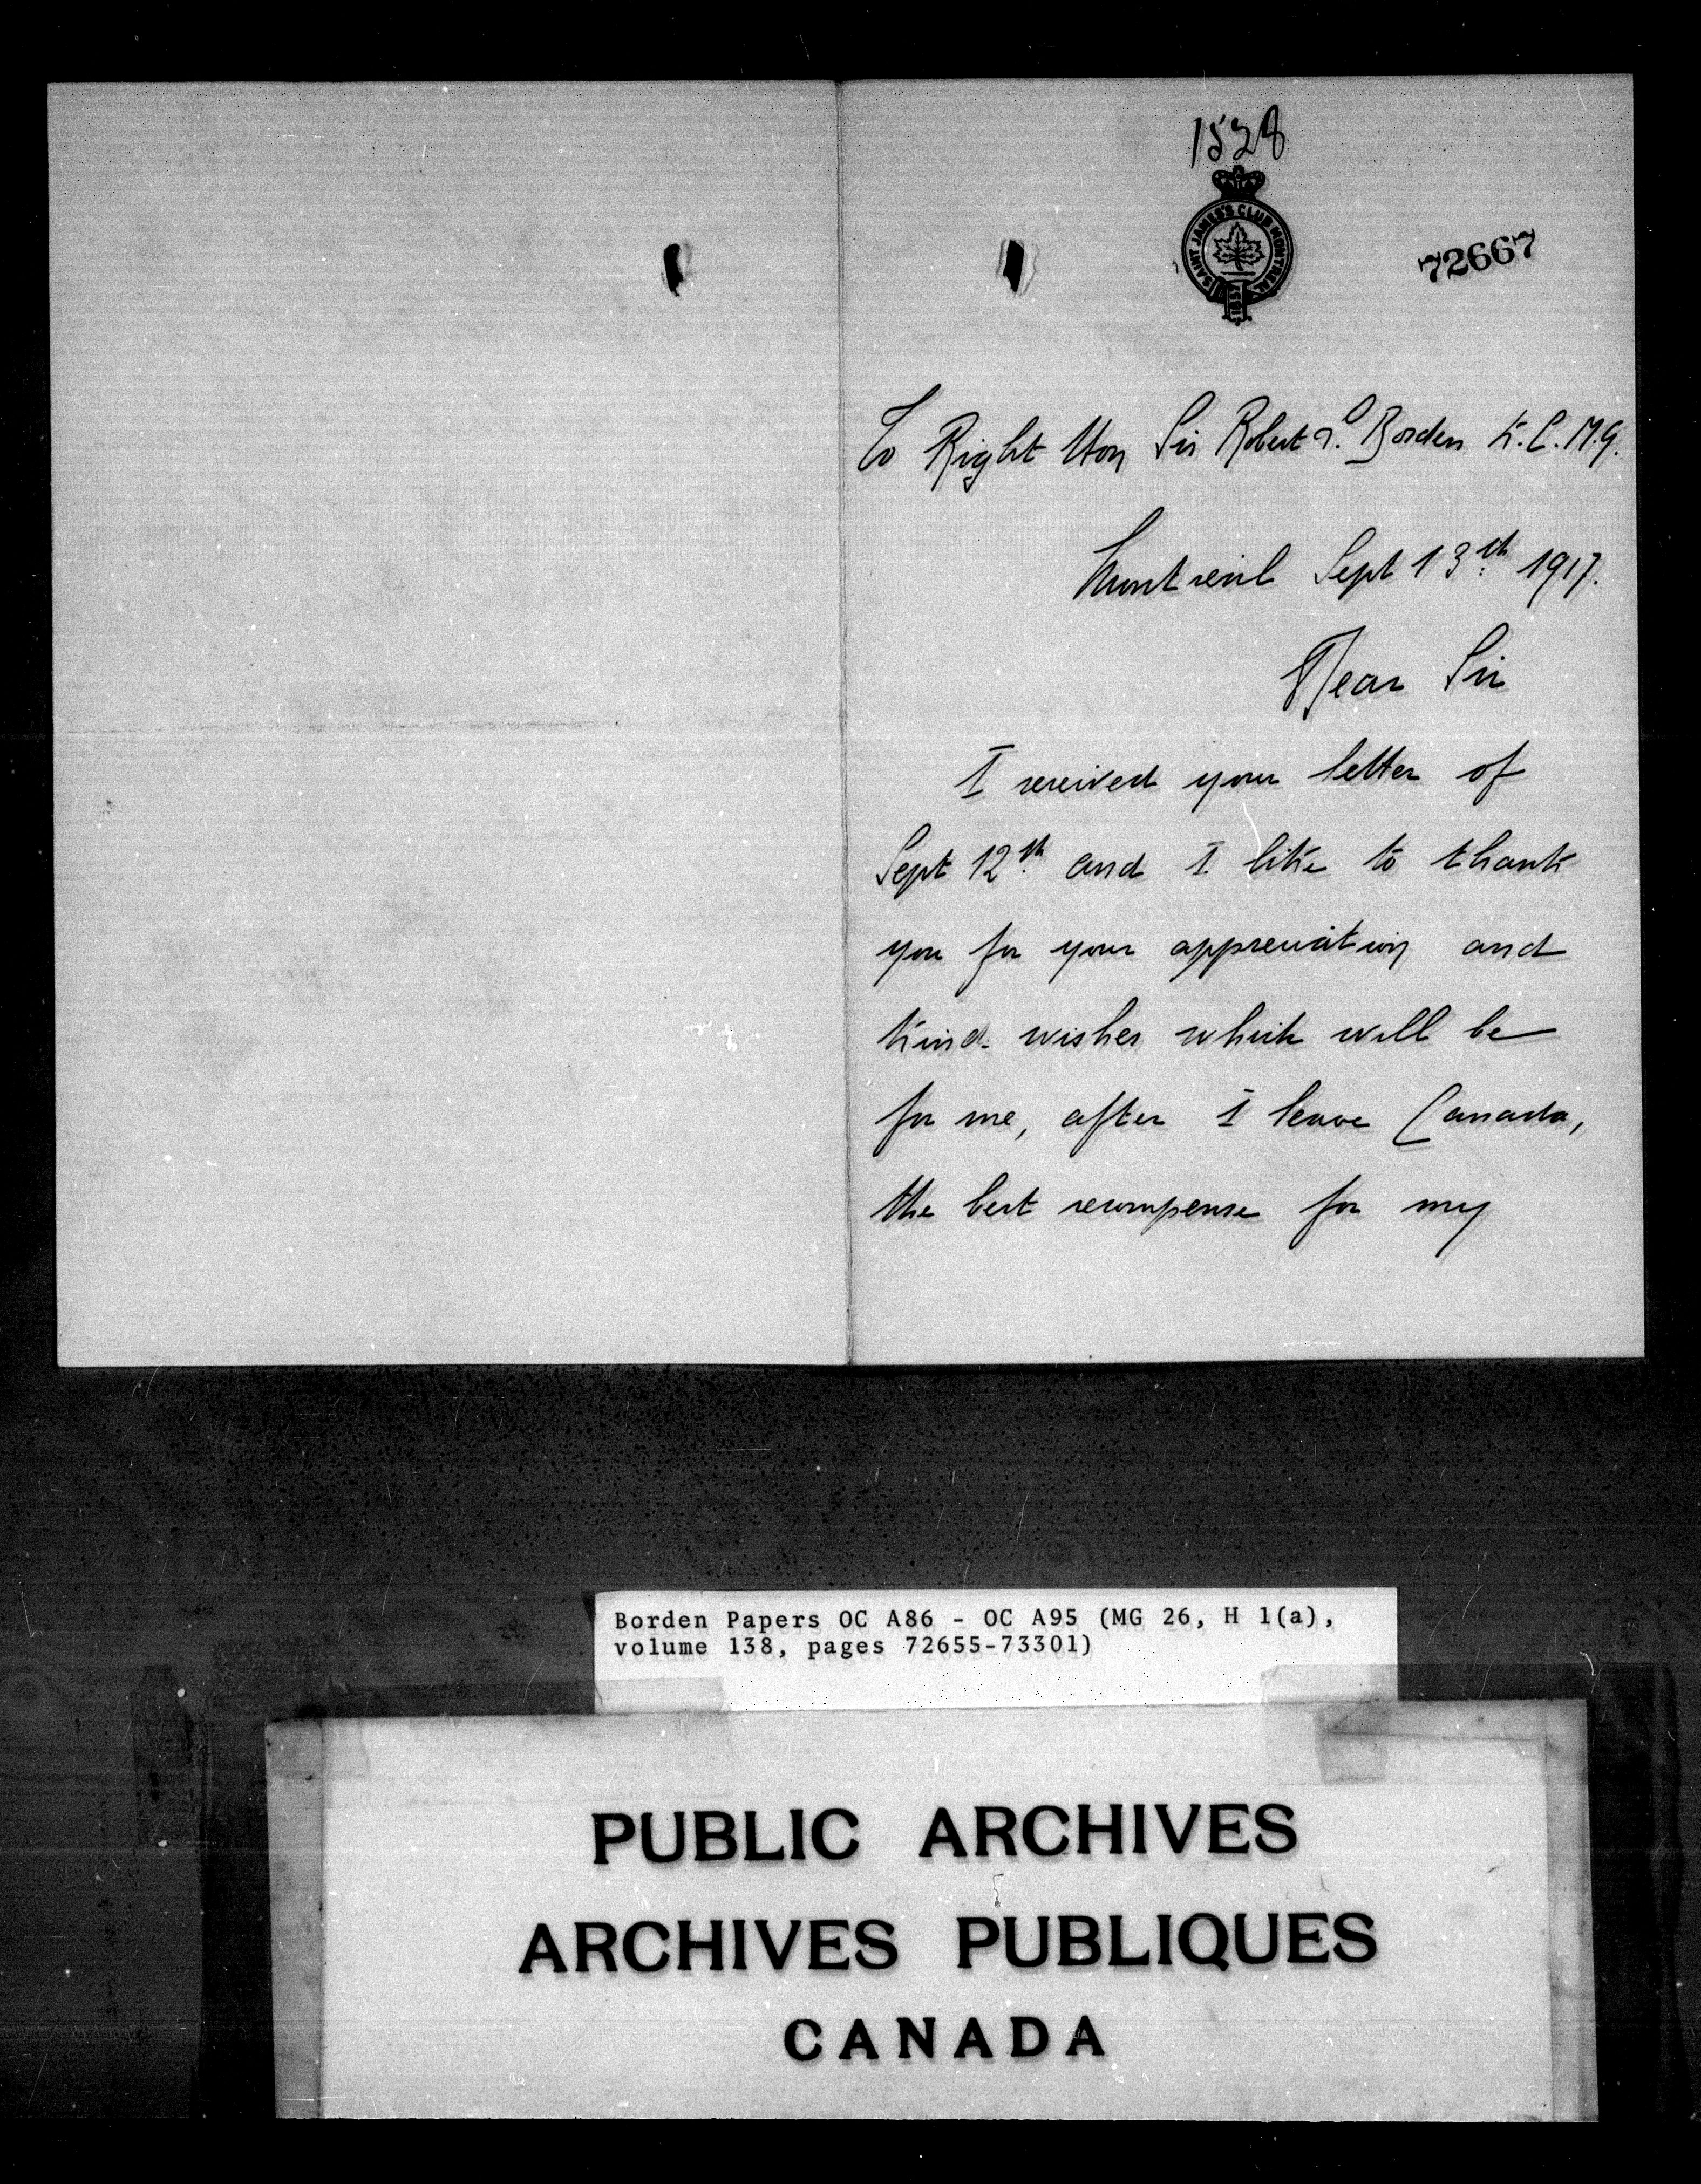 1528
SAINT JAMES'S CLUB MONTREAL
1857
72667
To Right Hon Sir Robert L. Borden K.C.M.G.
Montreal Sept 13th 1917.
Dear Sir
I received your letter of
Sept 12th and I like to thank
you for your appreciation and
kind wishes which will be
for me, after I leave Canada,
the best recompense for my
Borden Papers OC A86 - OC A95 (MG 26, H 1(a),
volume 138, pages 72655-73301)
PUBLIC ARCHIVES
ARCHIVES PUBLIQUES
CANADA